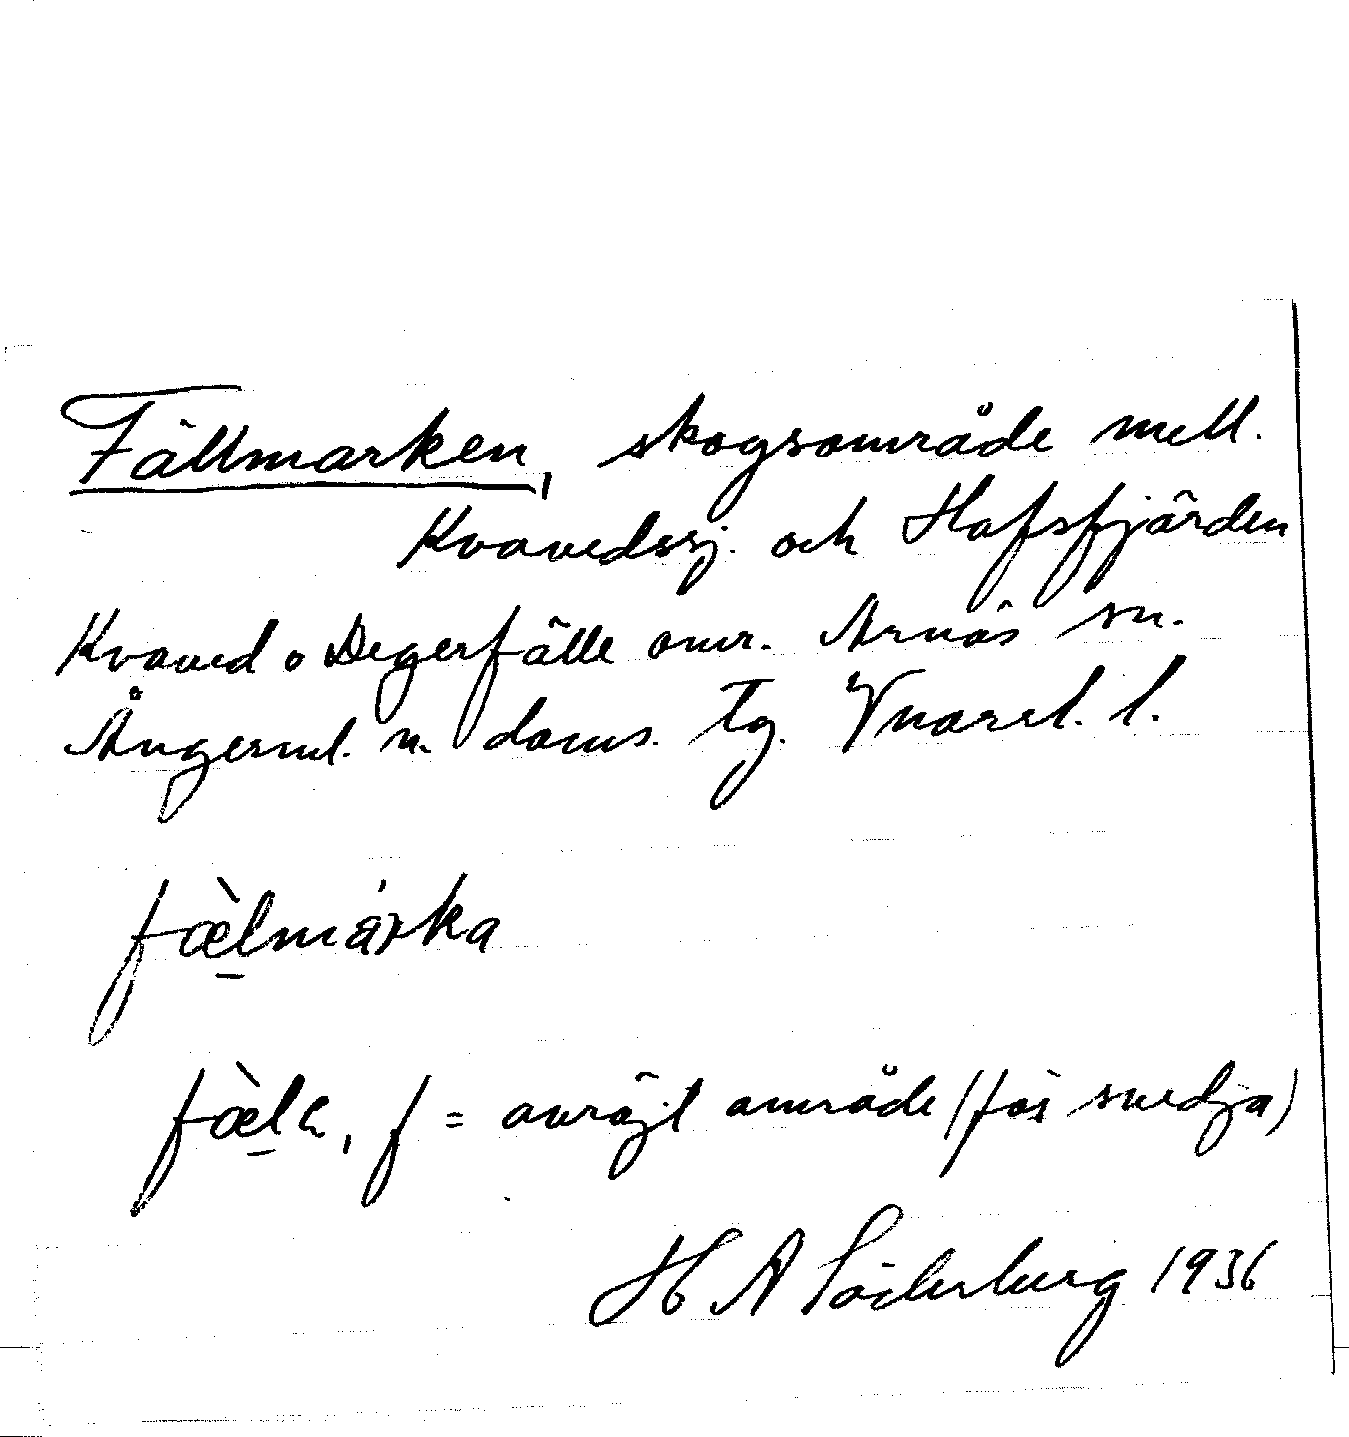 Fällmarken, skogsområde mell.
Kvavedssj. och Hafsfjärden
Kvaved o Degerfälle omr. Arnäs sn.
Ångerml. n. doms. Tg. Vnorrl. l.
fæ̀lmárka
fæ̀lа, f = avröjt område (för svedja)
H A Söderberg 1936